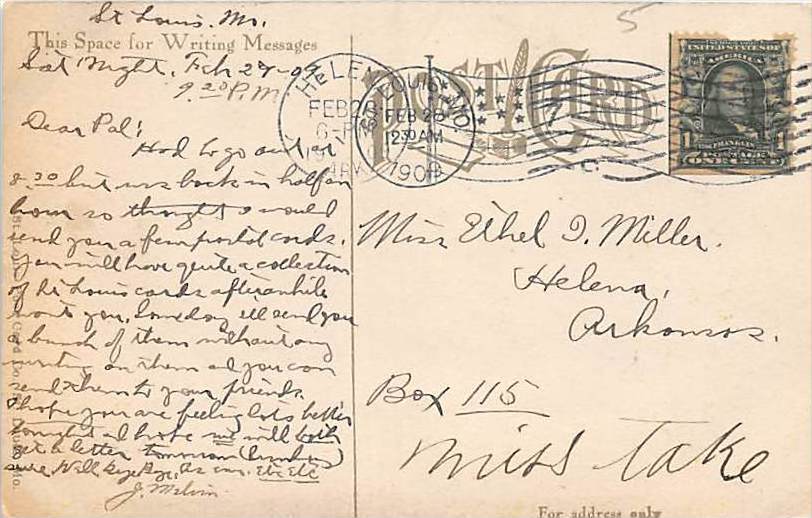 St Louis. Mo.
This Space for Writing Messages
Sat Night, Feb 27-09
9 20 P.M.
Dear Pal:
Had to go out at
8.30 but was back in half an
hour so thought I would
send you a few postal cards.
You will have quite a collection
of St Louis cards afterawhile
wont you. Someday I'll send you
a bunch of them without any
writing on them so you can
send them to your friends.
I hope you are feeling lots better
tonight I hope we will both
get a letter tomorrow (Sunday)
sure. Well, bye bye, As ever, Etc Etc
J. Melvin
POST CARD
HELENA
FEB 28
6-P
ARK
ST. LOUIS, MO.
FEB 28
12 30 AM
1909
5
UNITED STATES OF
AMERICA
FRANKLIN
1
ONE CENT
Miss Ethel I. Miller.
Helena,
Arkansas.
Box 115
Miss Take
For address only